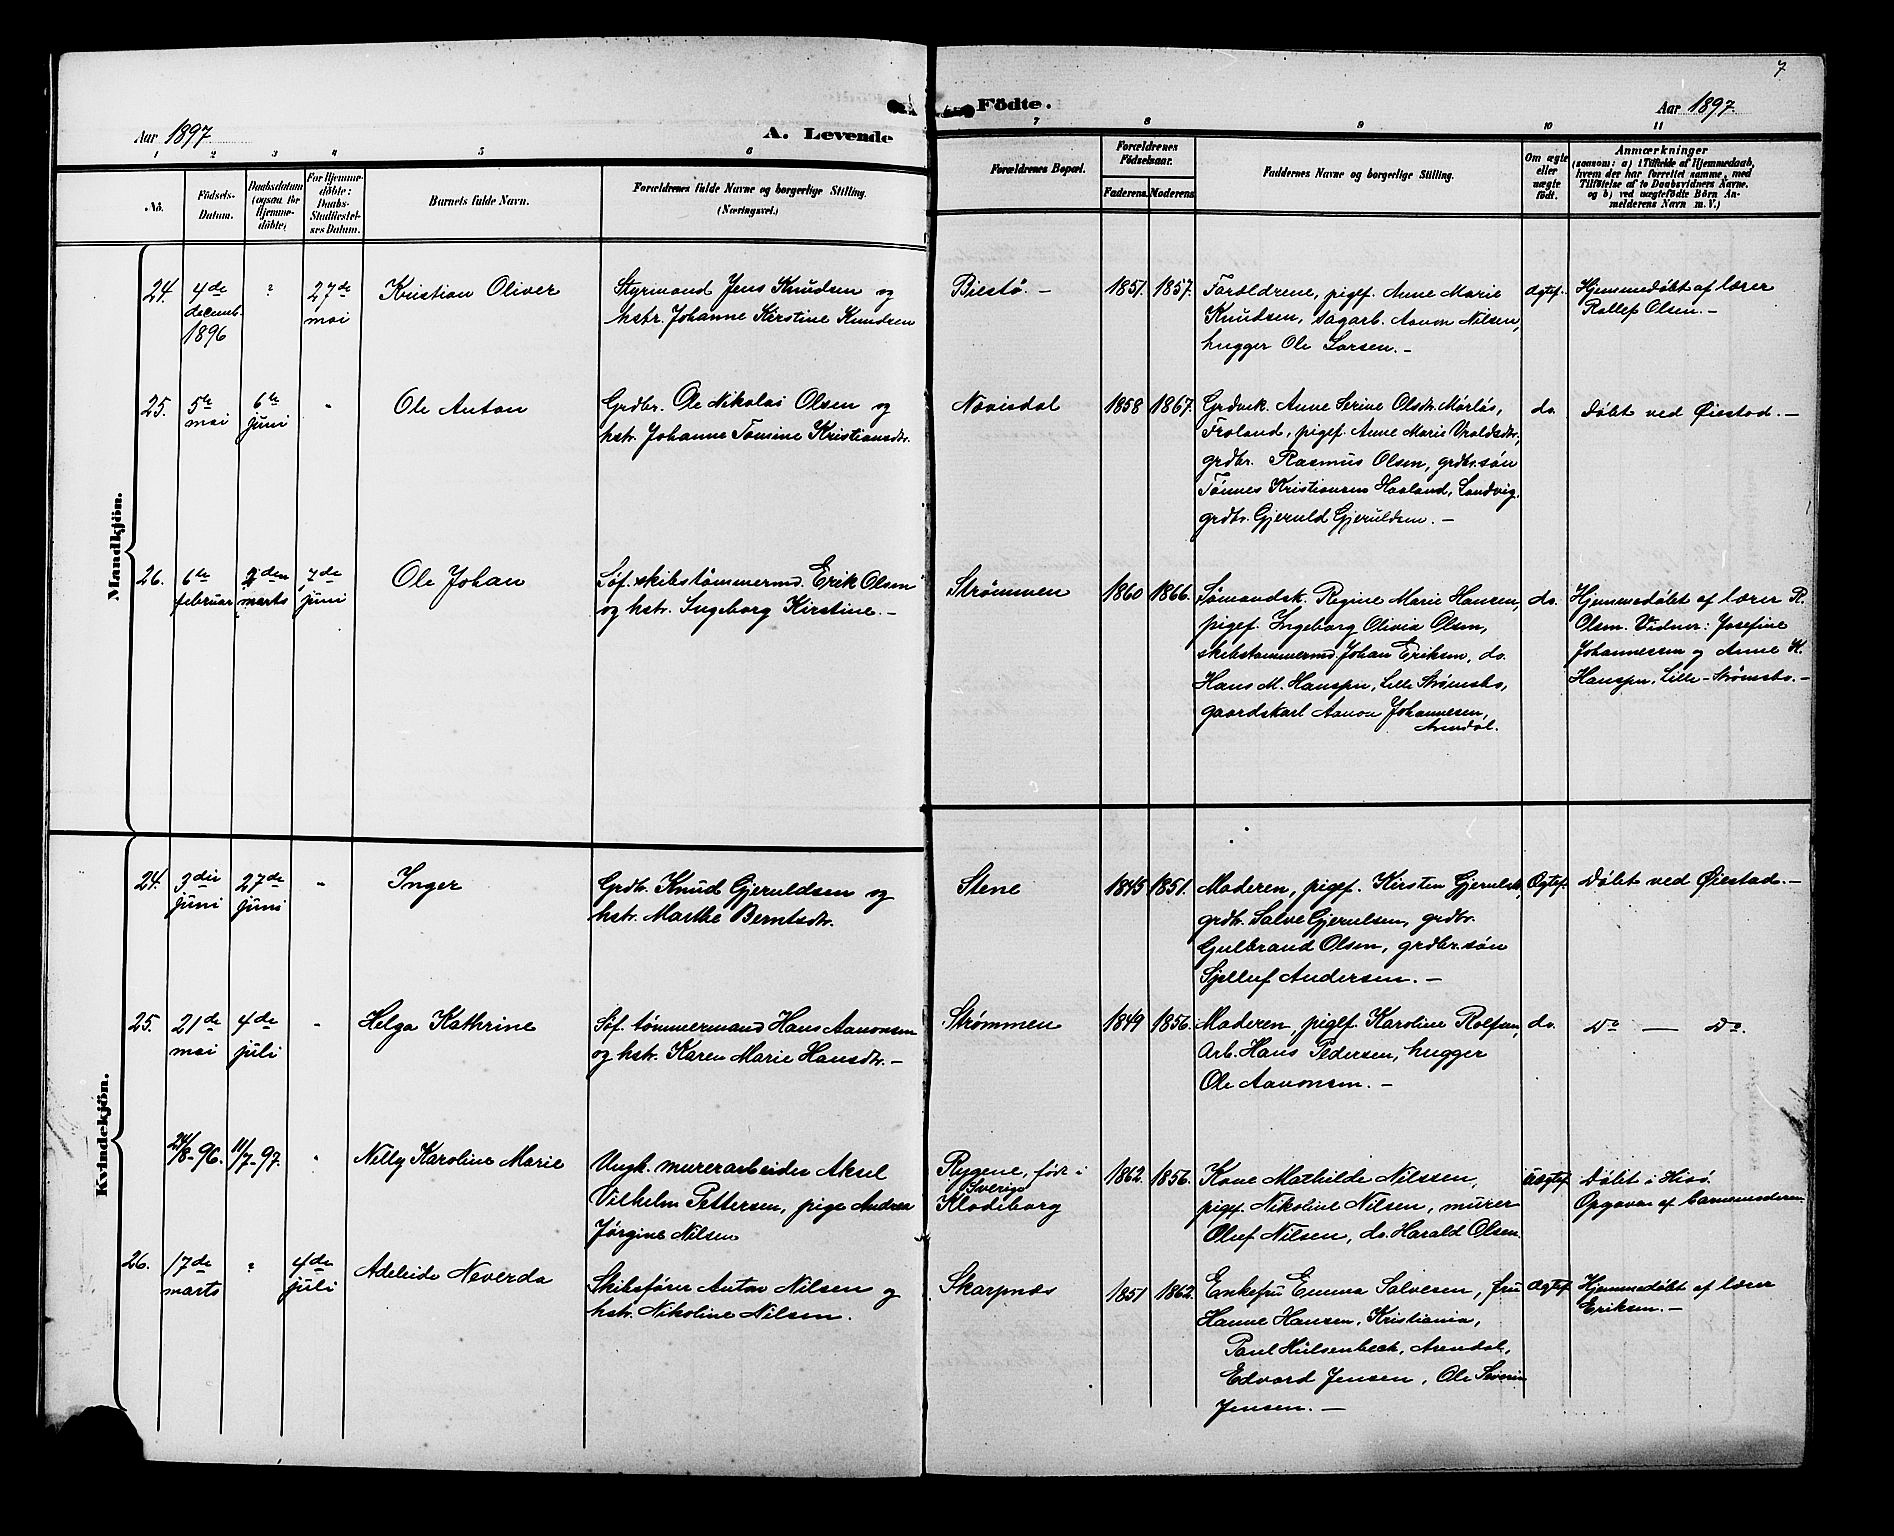 7
Födte.
Aar 1897
A. Levende
Aar 1897
1 2 3 4 5 6
7 8 9 10 11
No.
Födsels-
Datum.
Daabsdatum
(ogsaa for
Hjemme-
döbte)
For Hjemme-
döbte:
Daabs-
Stadfæstel-
ses Datum.
Barnets fulde Navn.
Forældrenes fulde Navne og borgerlige Stilling.
(Næringsvei.)
Forældrenes Bopæl.
Forældrenes
Födselsaar.
Faderens. Moderens.
Faddernes Navne og borgerlige Stilling.
Om ægte
eller
uægte
födt.
Anmærkninger
(saasom: a) i Tilfælde af Hjemmedaab,
hvem der har forrettet samme, med
Tilföielse af to Daabsvidners Navne.
og b) ved uægtefödte Börn An-
melderens Navn m. V.)
Mandkjön.
24.
4de
decemb.
1896
27de
mai
Kristian Oliver
Styrmand Jens Knudsen og
hstr. Johanne Kirstine Knudsen
Biestø. –
1851. 1857.
Forældrene, pigef. Anne Marie
Knudsen, sagarb. Aanon Nilsen,
hugger Ole Larsen. –
ægtef.
Hjemmedøbt af lærer
Rollef Olsen. –
25.
5te
mai
6te
juni
Ole Anton
Grdbr. Ole Nikolai Olsen og
hstr. Johanne Tomine Kristiansdtr.
Novisdal
1858 1867.
Grdbr.k. Anne Serine Olsdtr.
Froland, pigef. Anne Marie
grdbr. Rasmus Olsen, grdbr.søn
Tønnes Kristiansen Haaland, Landvig,
grdbr. Gjeruld Gjeruldsen. –
do.
Døbt ved Øiestad. –
26.
6te
februar
den
marts
7de
juni
Ole Johan
Søf. skibstømmermd. Erik Olsen
og hstr. Ingeborg Kirstine. –
Strømmen
1860 1866.
Sømandsk. Regine Marie Hansen,
pigef. Ingeborg Olivia Olsen,
skibstømmermd. Johan Eriksen, do.
Hans M. Hansen, Lille Strømsbo,
gaardskarl Aanon Johannesen,
Arendal.
do.
Hjemmedøbt af lærer R.
Olsen. Vidner: Josefine
Johannessen og Anne K.
Hansen, Lille-Strømsbo. –
Kvindekjön.
24.
3die
juni
27de
juni
Inger
Grdb. Knud Gjeruldsen og
hstr. Marthe Berntsdtr.
Stene
1845 1851.
Moderen, pigef. Kirsten Gjerulsdtr.
grdbr. Salve Gjerulsen, grdbr.
Gulbrand Olsen, grdbr.søn
Sjelluf Andersen. –
Ægtef.
Døbt ved Øiestad. –
25.
21de
mai
4de
juli
Helga Kathrine
Søf. tømmermand Hans Aanonsen
og hstr. Karen Marie Hansdtr. –
Strømmen
1849 1856.
Moderen, pigef. Karoline Rolfsen,
Arb. Hans Pedersen, hugger
Ole Aanonsen. –
do.
Do — Do.
24/8-96.
11/7-97.
Nelly Karoline Marie
Ungk. murerarbeider Aksel
Vilhelm Pettersen, pige Andrea
Jørgine Nilsen
Rygene, født i
Sverige
Klodeborg
1862. 1856.
Kone Mathilde Nilssen,
pigef. Nikoline Nilsen, murer
Oluf Nilsen, do. Harald Olsen.
Uægtef.
Døbt i Hisø.
Opgaver af barnemoderen
26.
17de
marts
4de
juli
Adeleide Neverda
Skibsfører Anton Nilsen og
hstr. Nikoline Nilsen.
Skarpnes
1851 1862.
Enkefru Emma Salvesen, fru
Hanne Hansen, Kristiania,
Paul Hülsenbeck, Arendal,
Edvard Jensen, Ole Severin
Jensen. –
Ægtef.
Hjemmedøbt af lærer
Eriksen. –